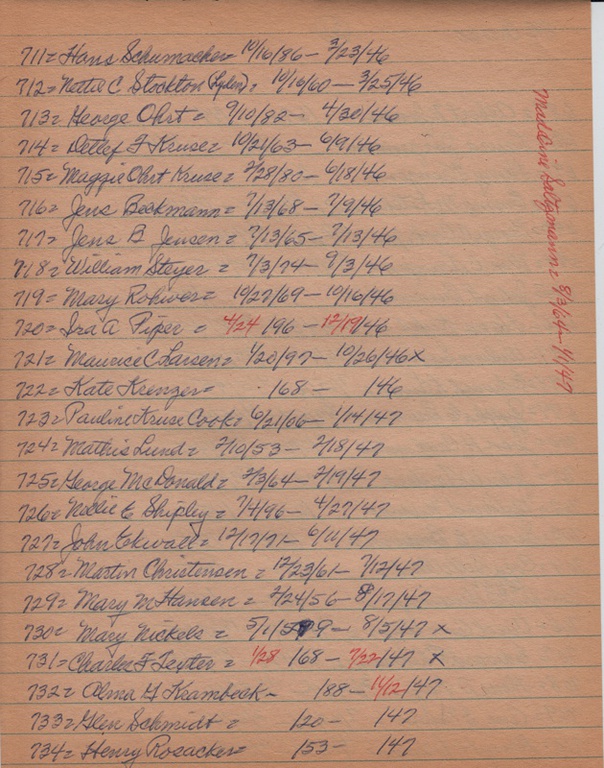 711= Hans Schumacher= 10/16/86 - 3/23/46
712= Nettie C Stockton (Syden)= 10/10/60 - 3/25/46
713= George Ohrt= 9/10/82 - 4/30/46
714= Detlef F Kruse= 10/21/63 - 6/9/46
715= Maggie Ohrt Kruse= 2/28/80 - 6/18/46
716= Jens Beckmann= 7/13/68 - 7/9/46
717= Jens B Jensen= 7/13/65 - 7/13/46
718= William Steyer= 7/3/74 - 9/3/46
719= Mary Rohwer= 10/27/69 - 10/16/46
720= Ira A Piper = 4/24 /96 - 12/19/46
721= Maurice C Larsen= 1/20/97 - 10/26/46 x
722= Kate Krenzer= /68 - /46
723= Pauline Kruse Cook= 6/21/06 - 1/14/47
724= Mathis Lund= 2/10/53 - 2/18/47
725= George McDonald= 2/3/64 - 2/19/47
726= Nellie E Shipley= 7/4/96 - 4/27/47
727= John Ekwall= 12/17/71 - 6/11/47
728= Martin Christensen= 12/23/61 - 7/12/47
729= Mary M Hansen= 2/24/56 - 8/17/47
730= Mary Nickels= 5/1/59 - 8/5/47 x
731= Charles F = 1/28 /68 - 7/22/47 x
732= Alma G Krambeck - /88 - 11/12/47
733= Glen Schmidt= /20 - /47
734= Henry Rosacker= /53 - /47
Saltzmann= 8/3/64 - 1/1/47